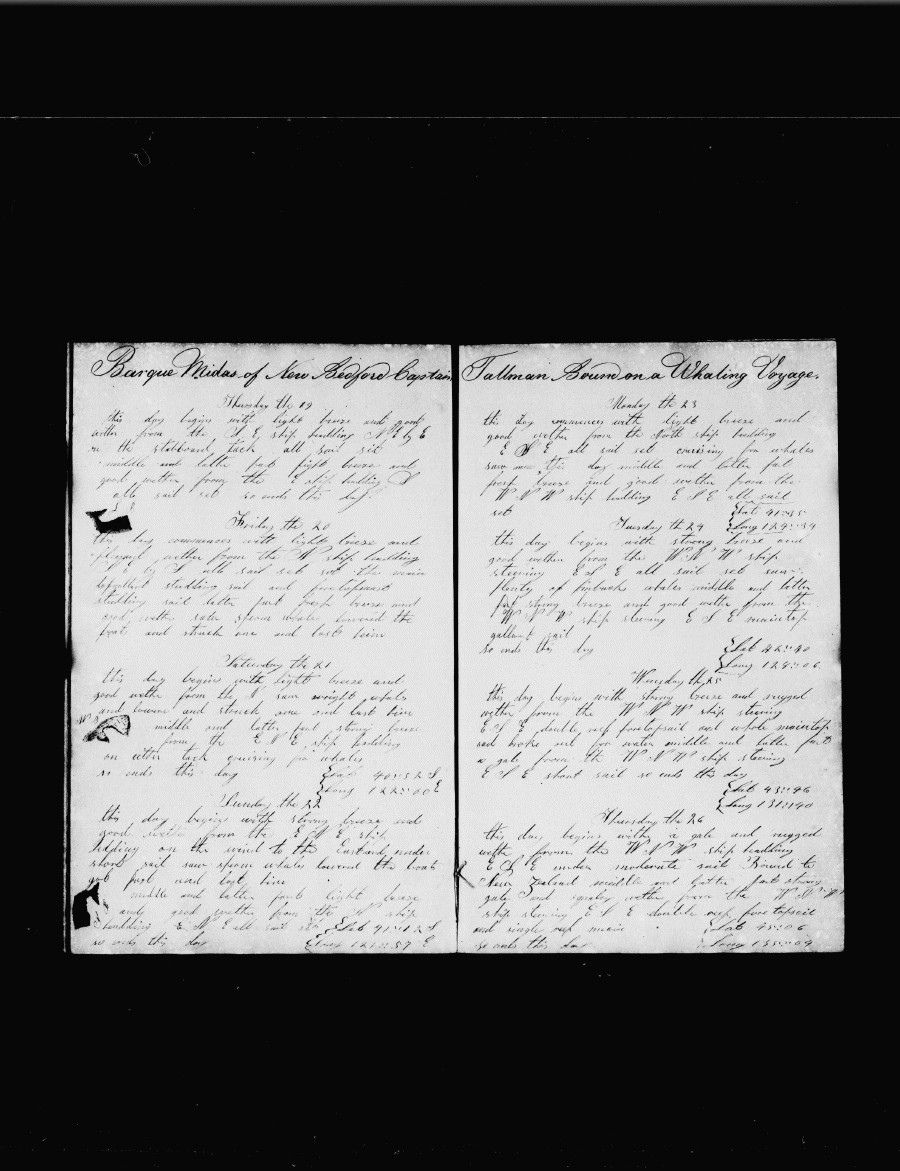 Barque Midas of New Bedford Captain
Thursday the 19
this day begins with light breze and good
wether from the E S E ship hedding N E by E
on the starboard tack all sail set
middle and latter part light breze and
good wether from the E ship hedding S
all sail set so ends this day
Friday the 20
this day commences with light breze and
plesant wether from the N ship hedding
by all sail set set the main
topgallent studding sail and foretopmast
studding sail latter part fresh breze and
good wether saw sperm whale lowered the
boats and struck one and lost him
Saturday the 21
this day begins with light breeze and
good wether from the N saw wright whals
and lowered and struck one and lost him
middle and latter part strong breze
from the E N E ship hedding
on either tack cruising for whales
so ends this day Lat 40::52 S
Long 122::00 E
Sunday the 22
this day begins with strong breze and
good wether from the E N E ship
hedding on the wind to the Eastward under
short sail saw sperm whales lowered the boats
got fast and lost him
middle and latter part light breze
and good wether from the N ship
hedding E N E all sail set Lat 41::12 S
so ends this day Long 121::57 E
Tallman Bound on a Whaling Voyage.
Monday the 23
this day commences with light breeze and
good wether from the North ship hedding
E S E all sail set cruising for whales
saw none this day middle and latter part
fresh breeze and good wether from the
W N W ship hedding E S E all sail
set Lat 41::35
Tuesday th 24 Long 124::34
this day begins with strong breeze and
good wether from the W N W ship
steering E S E all sail set saw
plenty of finbacks whales middle and latter
part strong breeze and good wether from the
W N W ship steering E S E maintop
gallant sail
so ends this day Lat 42::40
Long 128::06
Wensday th 25
this day begins with strong breeze and rugged
wether from the W N W ship steering
E S E double reef foretopsail and whole maintop
sail broke out for water middle and latter part
a gale from the W N W ship steering
E S E short sail so ends this day
Lat 43::46
Long 131::40
Thursday the 26
this day begins withe a gale and rugged
wether from the W N W ship hedding
E S E under moderate sail Bound to
New Zealand middle and latter part strong
gale and squaley wether from the W N W
ship steering E S E double reef foretopsail
and single reef main Lat 45::06
so ends this day Long 135::09